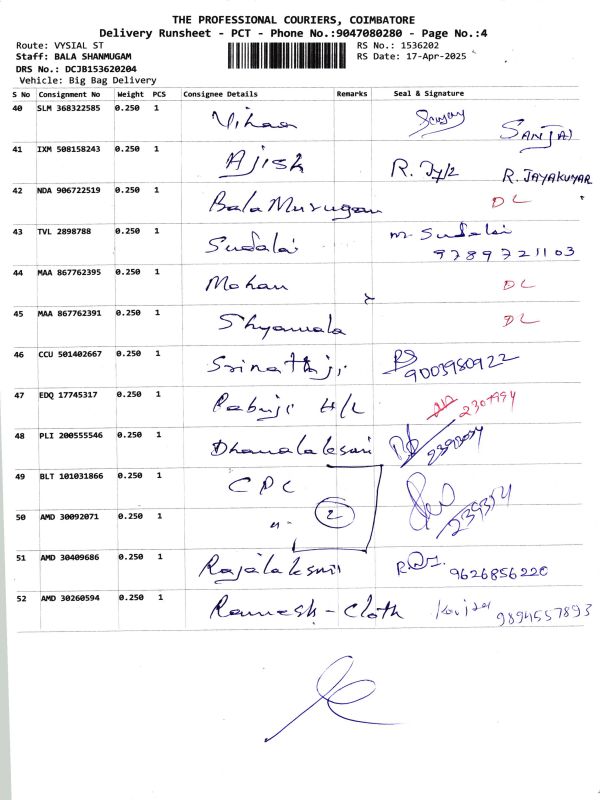 THE PROFESSIONAL COURIERS, COIMBATORE
Delivery Runsheet - PCT - Phone No.:9047080280 - Page No.:4
Route: VYSIAL ST RS No.: 1536202
Staff: BALA SHANMUGAM RS Date: 17-Apr-2025
DRS No.: DCJB153620204
Vehicle: Big Bag Delivery
S No Consignment No Weight PCS Consignee Details Remarks Seal & Signature
40 SLM 368322585 0.250 1 Vihaa Sanjay SANJAI
41 IXM 508158243 0.250 1 Ajish R. R. JAYAKUMAR
42 NDA 906722519 0.250 1 Bala Murugan DL
43 TVL 2898788 0.250 1 Sudalai m. Sudalai
9789721103
44 MAA 867762395 0.250 1 Mohan DL
45 MAA 867762391 0.250 1 Shyamala DL
46 CCU 501402667 0.250 1 Srinathji 9003980922
47 EDQ 17745317 0.250 1 Pabuji H/L
48 PLI 200555546 0.250 1 Dhanalaksmi
49 BLT 101031866 0.250 1 CPC
50 AMD 30092071 0.250 1 " 2
51 AMD 30409686 0.250 1 Rajalaksmi 9626856220
52 AMD 30260594 0.250 1 Ramesh - Cloth 9894557893